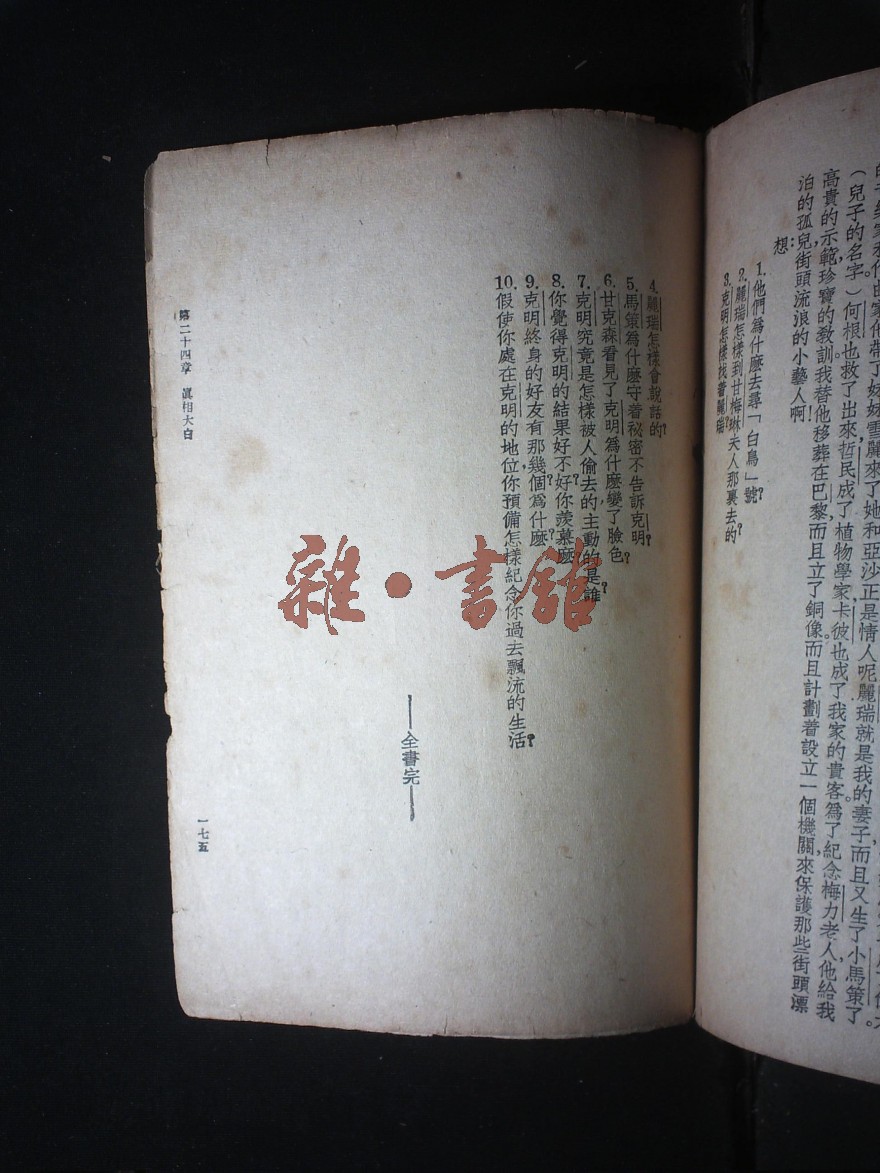 （兒子的名字）何根也救了出來，哲民成了植物學家。卡彼也成了我家的貴客。爲了紀念梅力老人他給我
高貴的示範，珍寶的敎訓，我替他移葬在巴黎，而且立了銅像，而且計劃着設立一個機關，來保護那些街頭漂
泊的孤兒，街頭流浪的小藝人啊！
想：
1. 他們爲什麼去尋「白鳥」號？
2. 麗瑞怎樣到甘梅琳夫人那裏去的？
3. 克明怎樣找着麗瑞？
4. 麗瑞怎樣會說話的？
5. 馬策爲什麼守着秘密不告訴克明？
6. 甘克森看見了克明爲什麼變了臉色？
7. 克明究竟是怎樣被人偷去的？主動的是誰？
8. 你覺得克明的結果好不好？你羨慕麼？
9. 克明終身的好友有那幾個？爲什麼？
10. 假使你處在克明的地位，你預備怎樣紀念你過去飄流的生活？
——全書完——
第二十四章 眞相大白
一七五
雜·書館